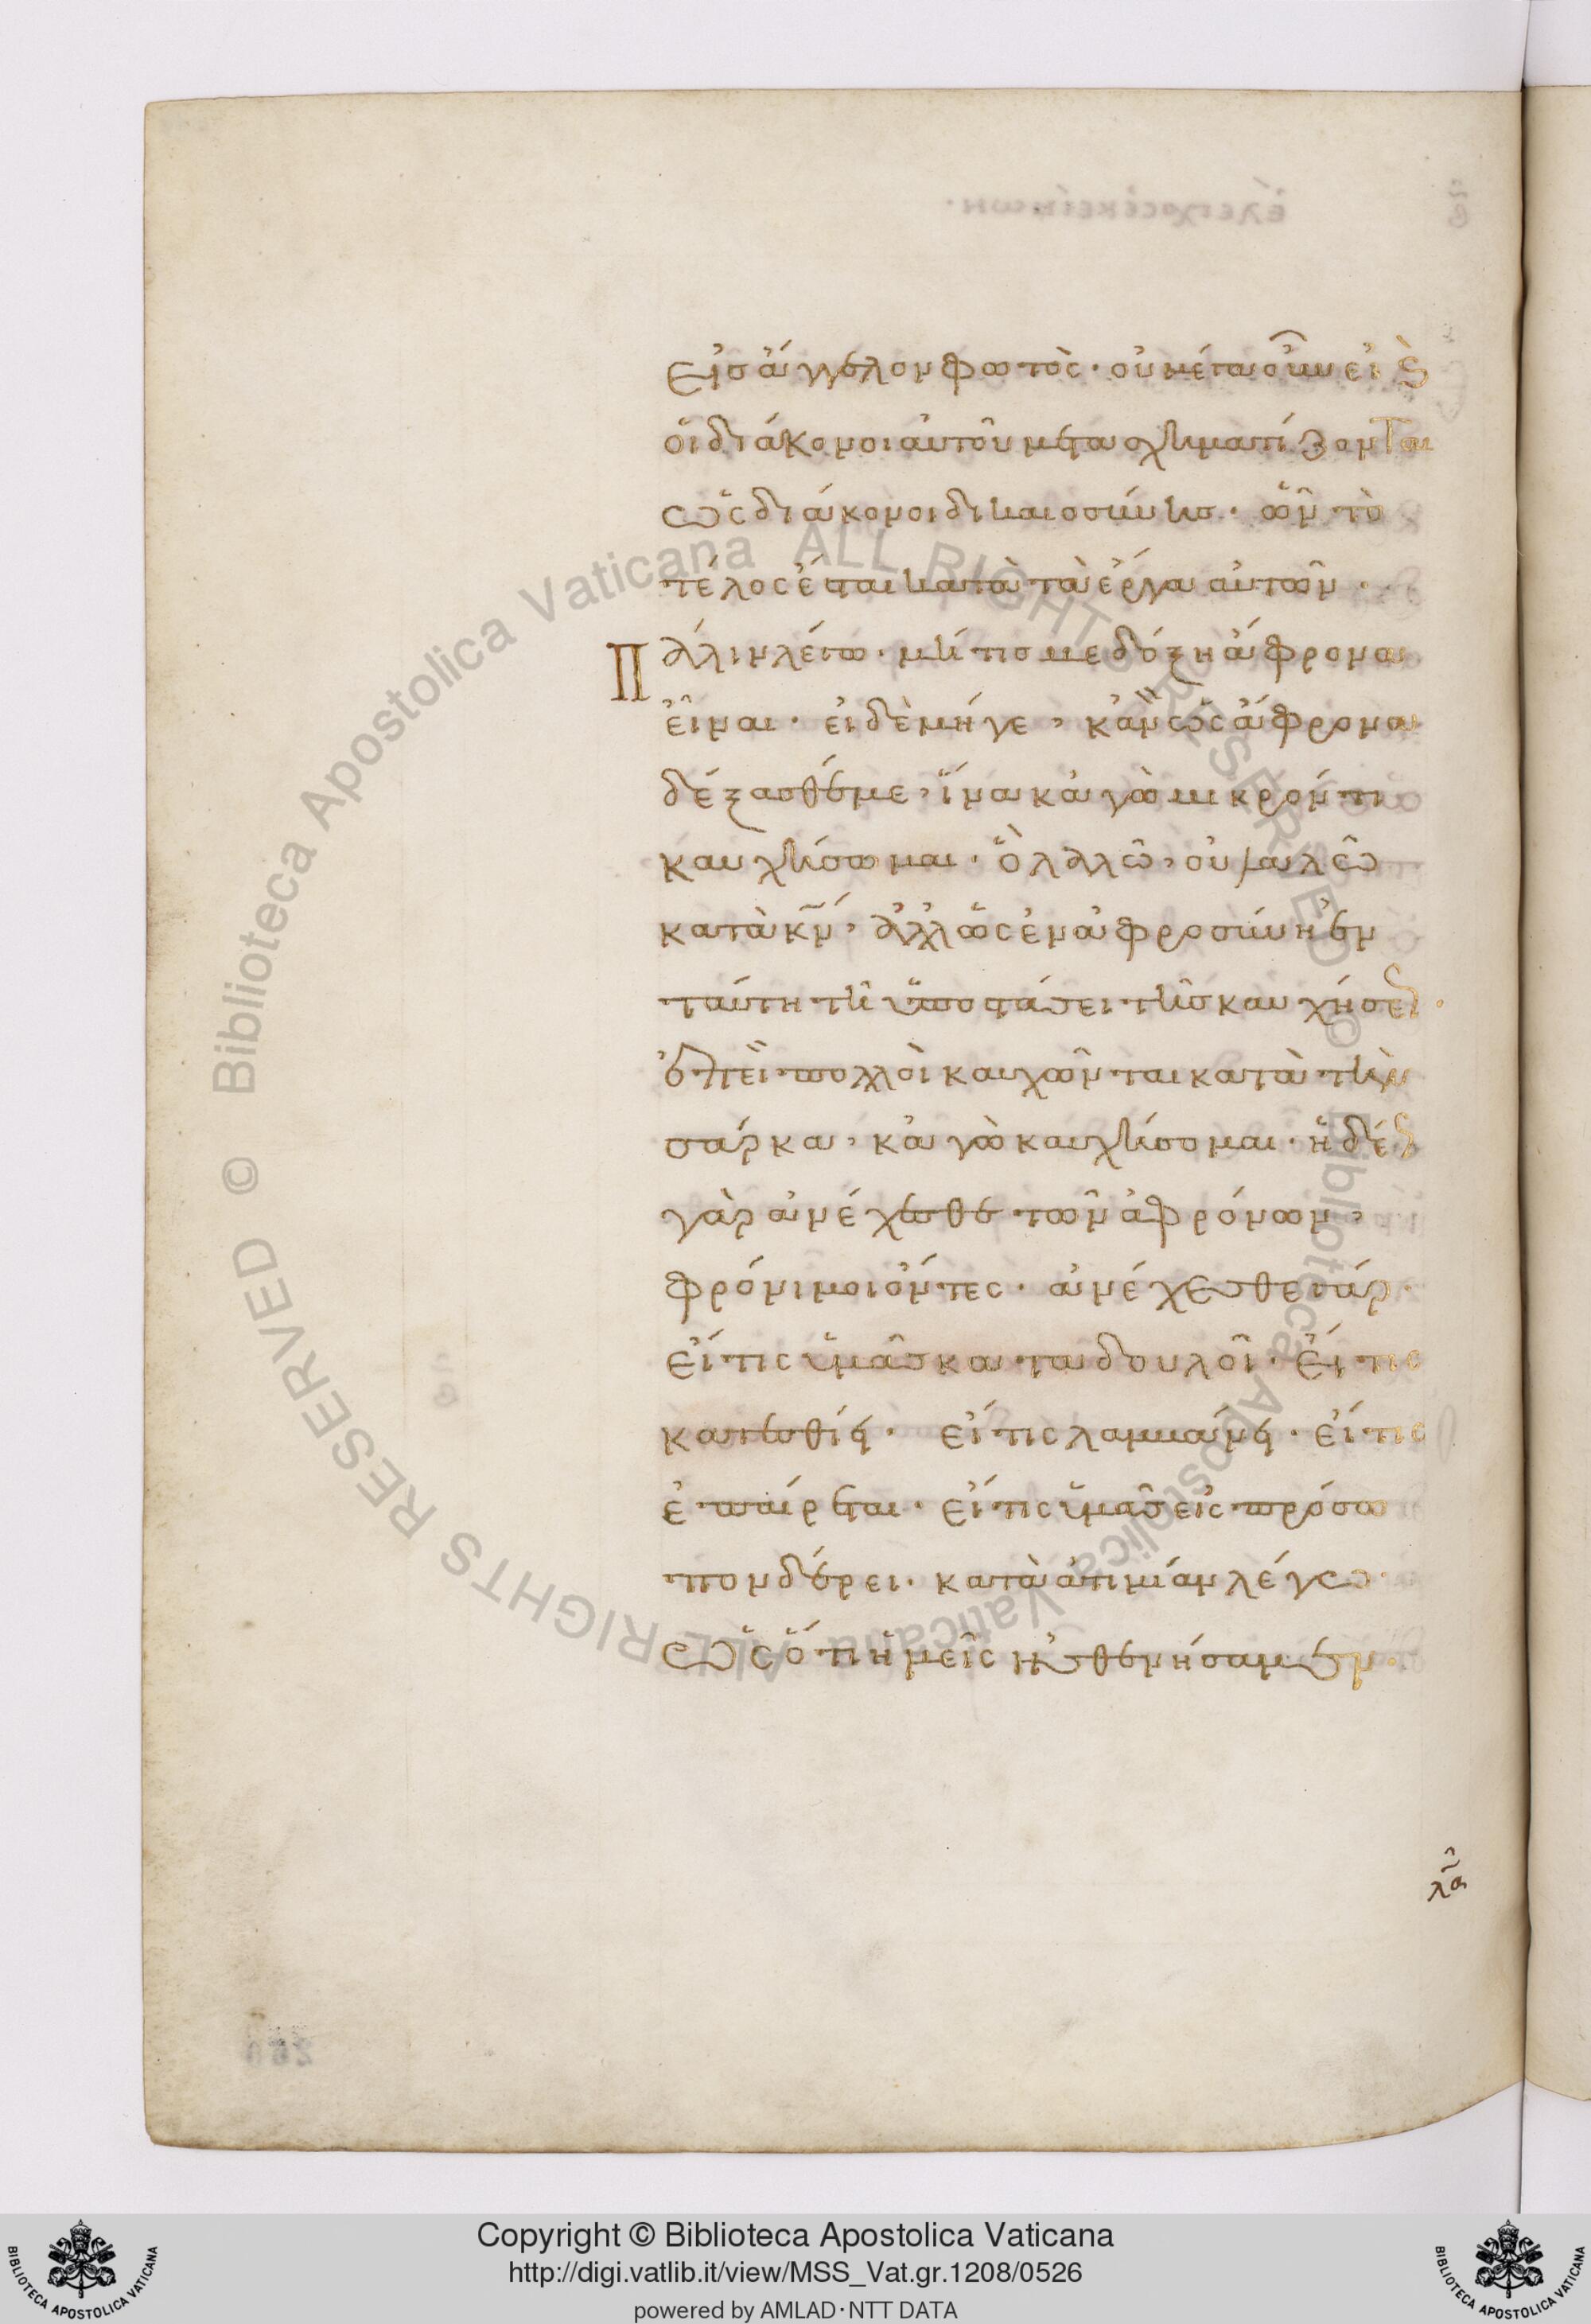 εἰς ἄγγελον φωτός· οὐ μέγα οὖν εἰ καὶ
οἱ διάκονοι αὐτοῦ μετασχηματίζονται
ὡς διάκονοι δικαιοσύνης· ὧν τὸ
τέλος ἔσται κατὰ τὰ ἔργα αὐτῶν·
Πάλιν λέγω· μή τις με δόξη ἄφρονα
εἶναι· εἰ δὲ μήγε, κἂν ὡς ἄφρονα
δέξασθέ με, ἵνα κἀγὼ μικρόν τι
καυχήσωμαι· ὃ λαλῶ, οὐ λαλῶ
κατὰ κν, ἀλλ ὡς ἐν ἀφροσύνη ἐν
ταύτη τῆ ὑποστάσει τῆς καυχήσεως·
ἐπεὶ πολλοὶ καυχῶνται κατὰ τὴν
σάρκα, κἀγὼ καυχήσομαι· ἡδέως
γὰρ ἀνέχεσθε τῶν ἀφρόνων,
φρόνιμοι ὄντες· ἀνέχεσθε γάρ·
εἴ τις ὑμᾶς καταδουλοῖ· εἴ τις
κατεσθίει· εἴ τις λαμβάνει· εἴ τις
ἐπαίρεται· εἴ τις ὑμᾶς εἰς πρόσω
πον δέρει· κατὰ ἀτιμίαν λέγω·
ὡς ὅτι ἡμεῖς ἠσθενήσαμεν·
λα
Copyright © Biblioteca Apostolica Vaticana
http://digi.vatlib.it/view/MSS_Vat.gr.1208/0526
powered by AMLAD·NTT DATA
BIBLIOTECA APOSTOLICA VATICANA
BIBLIOTECA APOSTOLICA VATICANA
© Biblioteca Apostolica Vaticana ALL RIGHTS RESERVED © Biblioteca Apostolica Vaticana ALL RIGHTS RESERVED